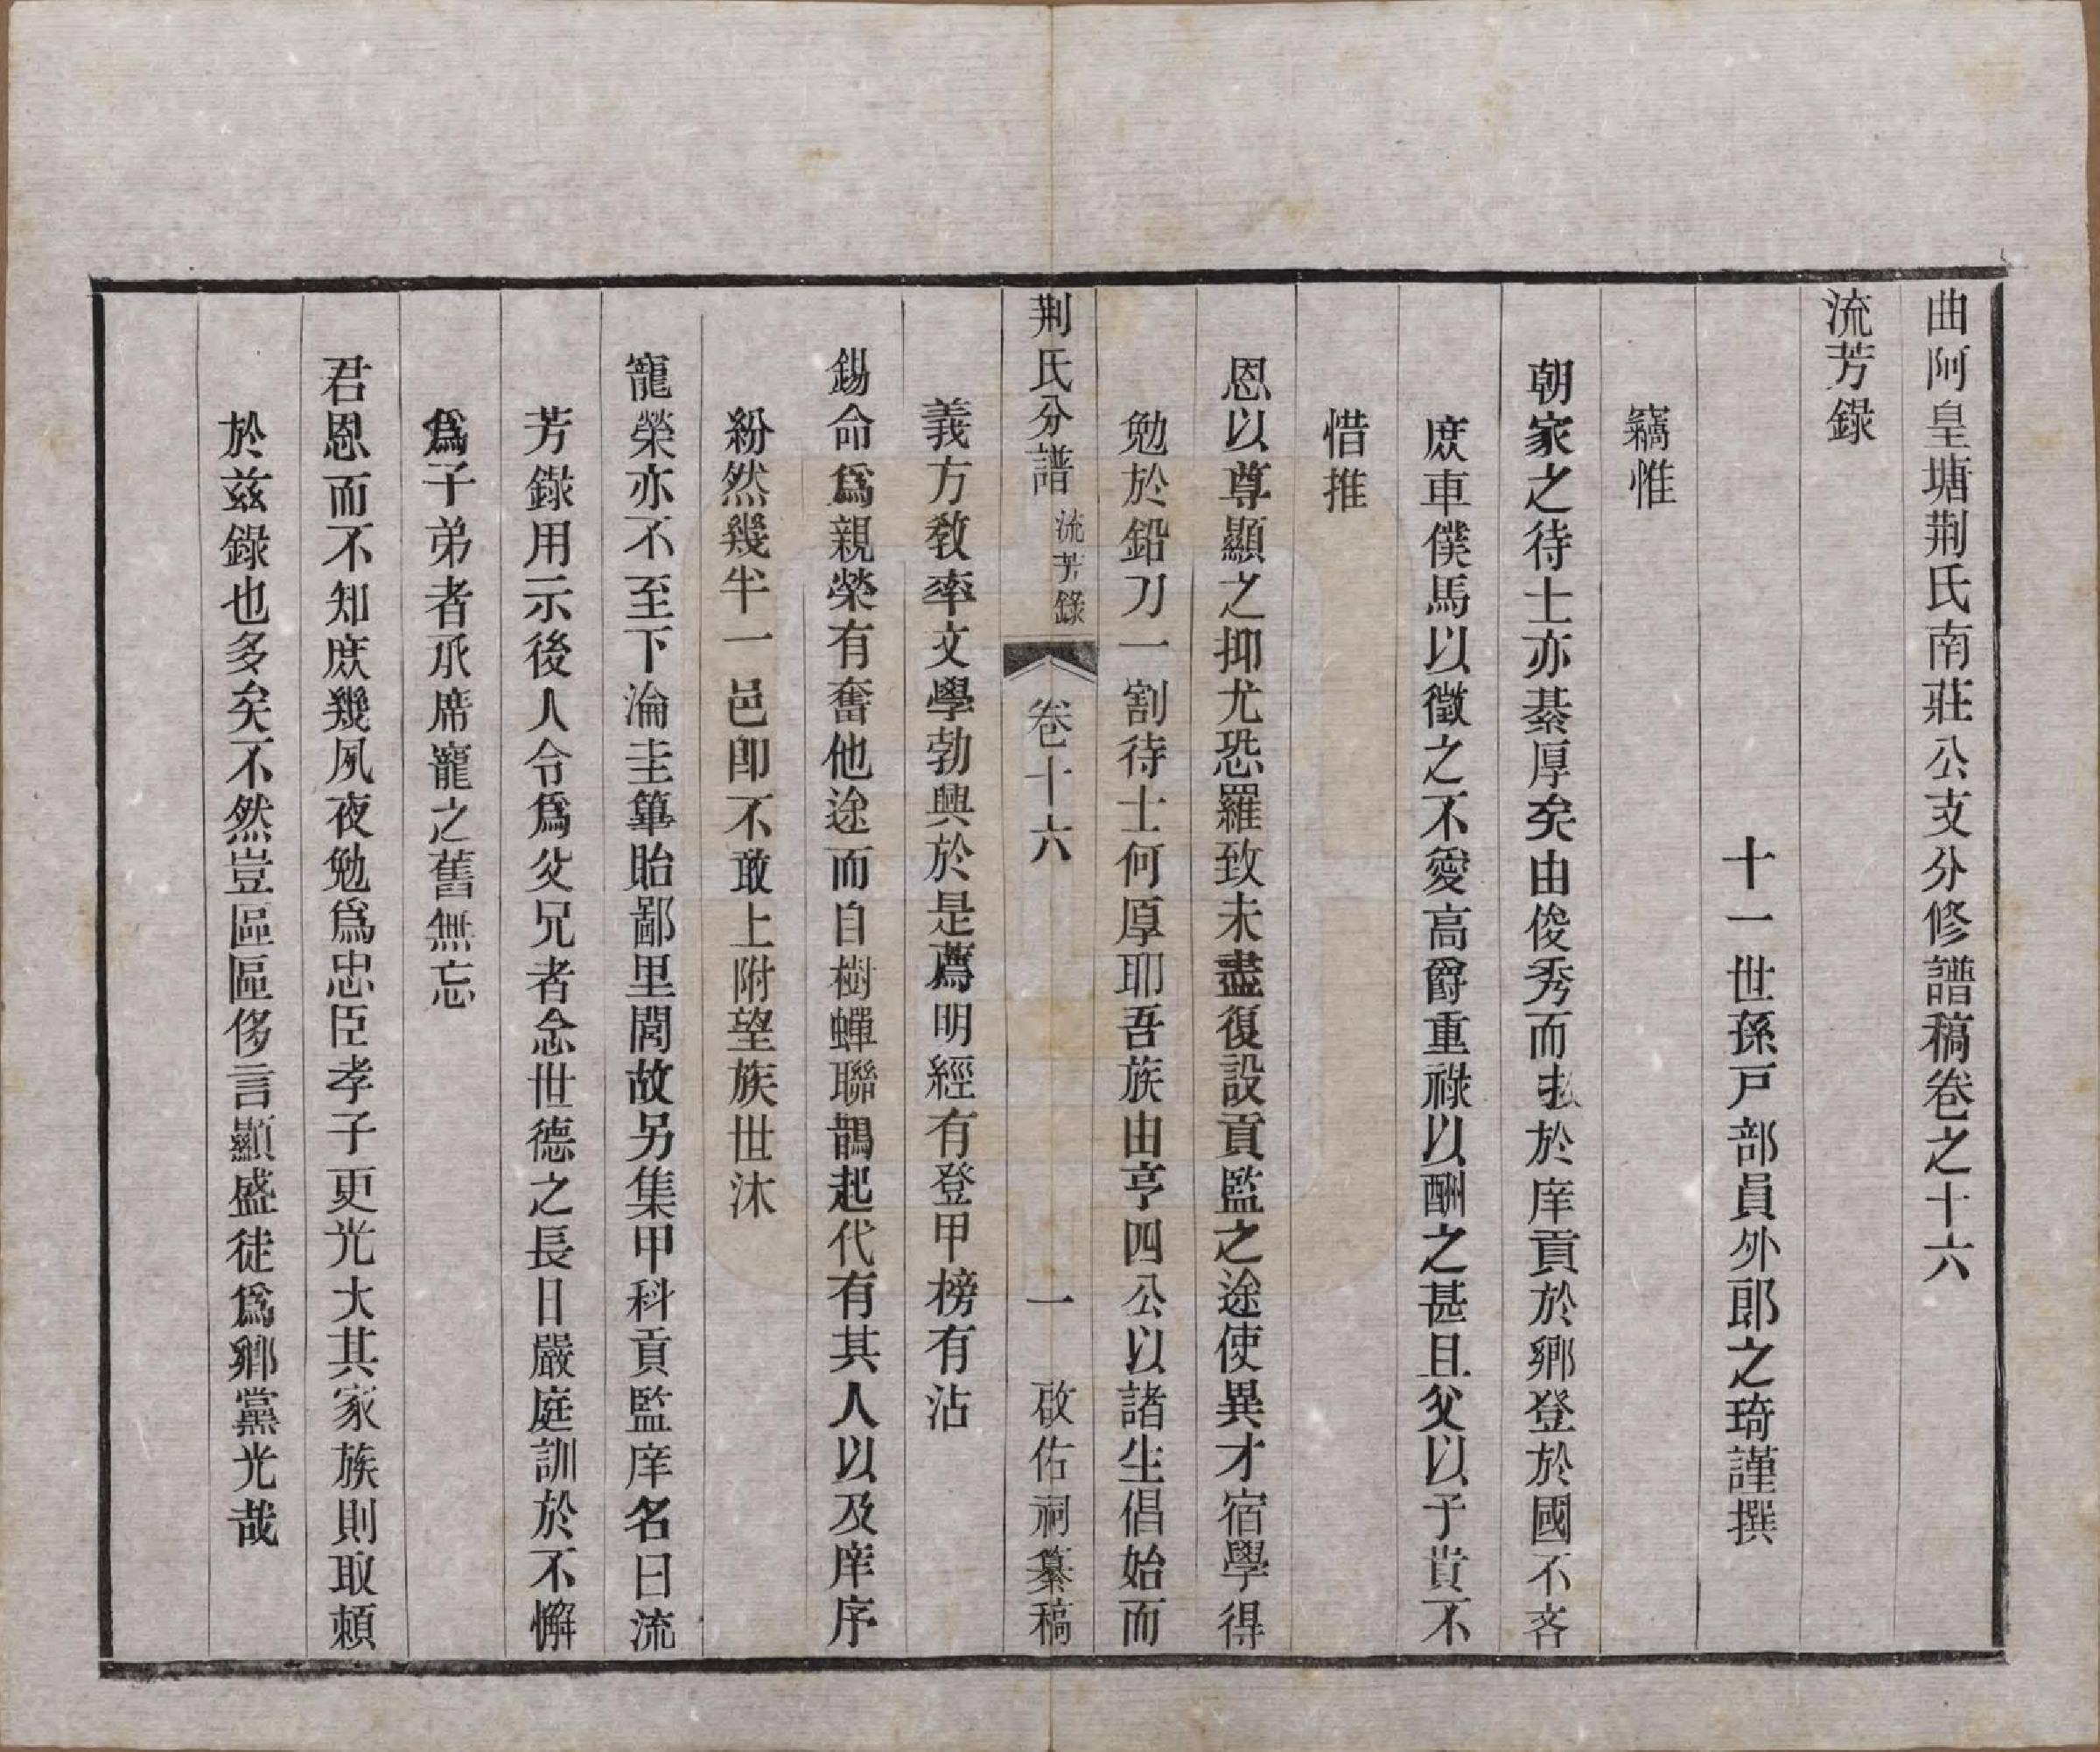 曲阿皇塘荆氏南莊公支分修譜稿卷之十六
流芳錄
十一世孫戸部員外郎之琦謹撰
竊惟
朝家之待士亦綦厚矣由俊秀而拔於庠貢於鄉登於國不吝
庶車僕馬以徵之不愛高爵重祿以酬之甚且父以子貴不
惜推
恩以尊顯之抑尤恐羅致未盡復設貢監之途使異才宿學得
勉於鉛刀一割待士何厚耶吾族由亨四公以諸生倡始而
荆氏分譜 流芳錄 卷十六 一 啟佑祠纂稿
義方敎率文學勃興於是薦明經有登甲榜有沾
錫命爲親榮有奮他途而自樹蟬聯鵲起代有其人以及庠序
紛然幾半一邑卽不敢上附望族世沐
寵榮亦不至下淪圭篳貽鄙里閭故另集甲科貢監庠名曰流
芳錄用示後人令爲父兄者念世德之長日嚴庭訓於不懈
爲子弟者承席寵之舊無忘
君恩而不知庶幾夙夜勉爲忠臣孝子更光大其家族則取頼
於茲錄也多矣不然豈區區侈言顯盛徒爲鄉黨光哉